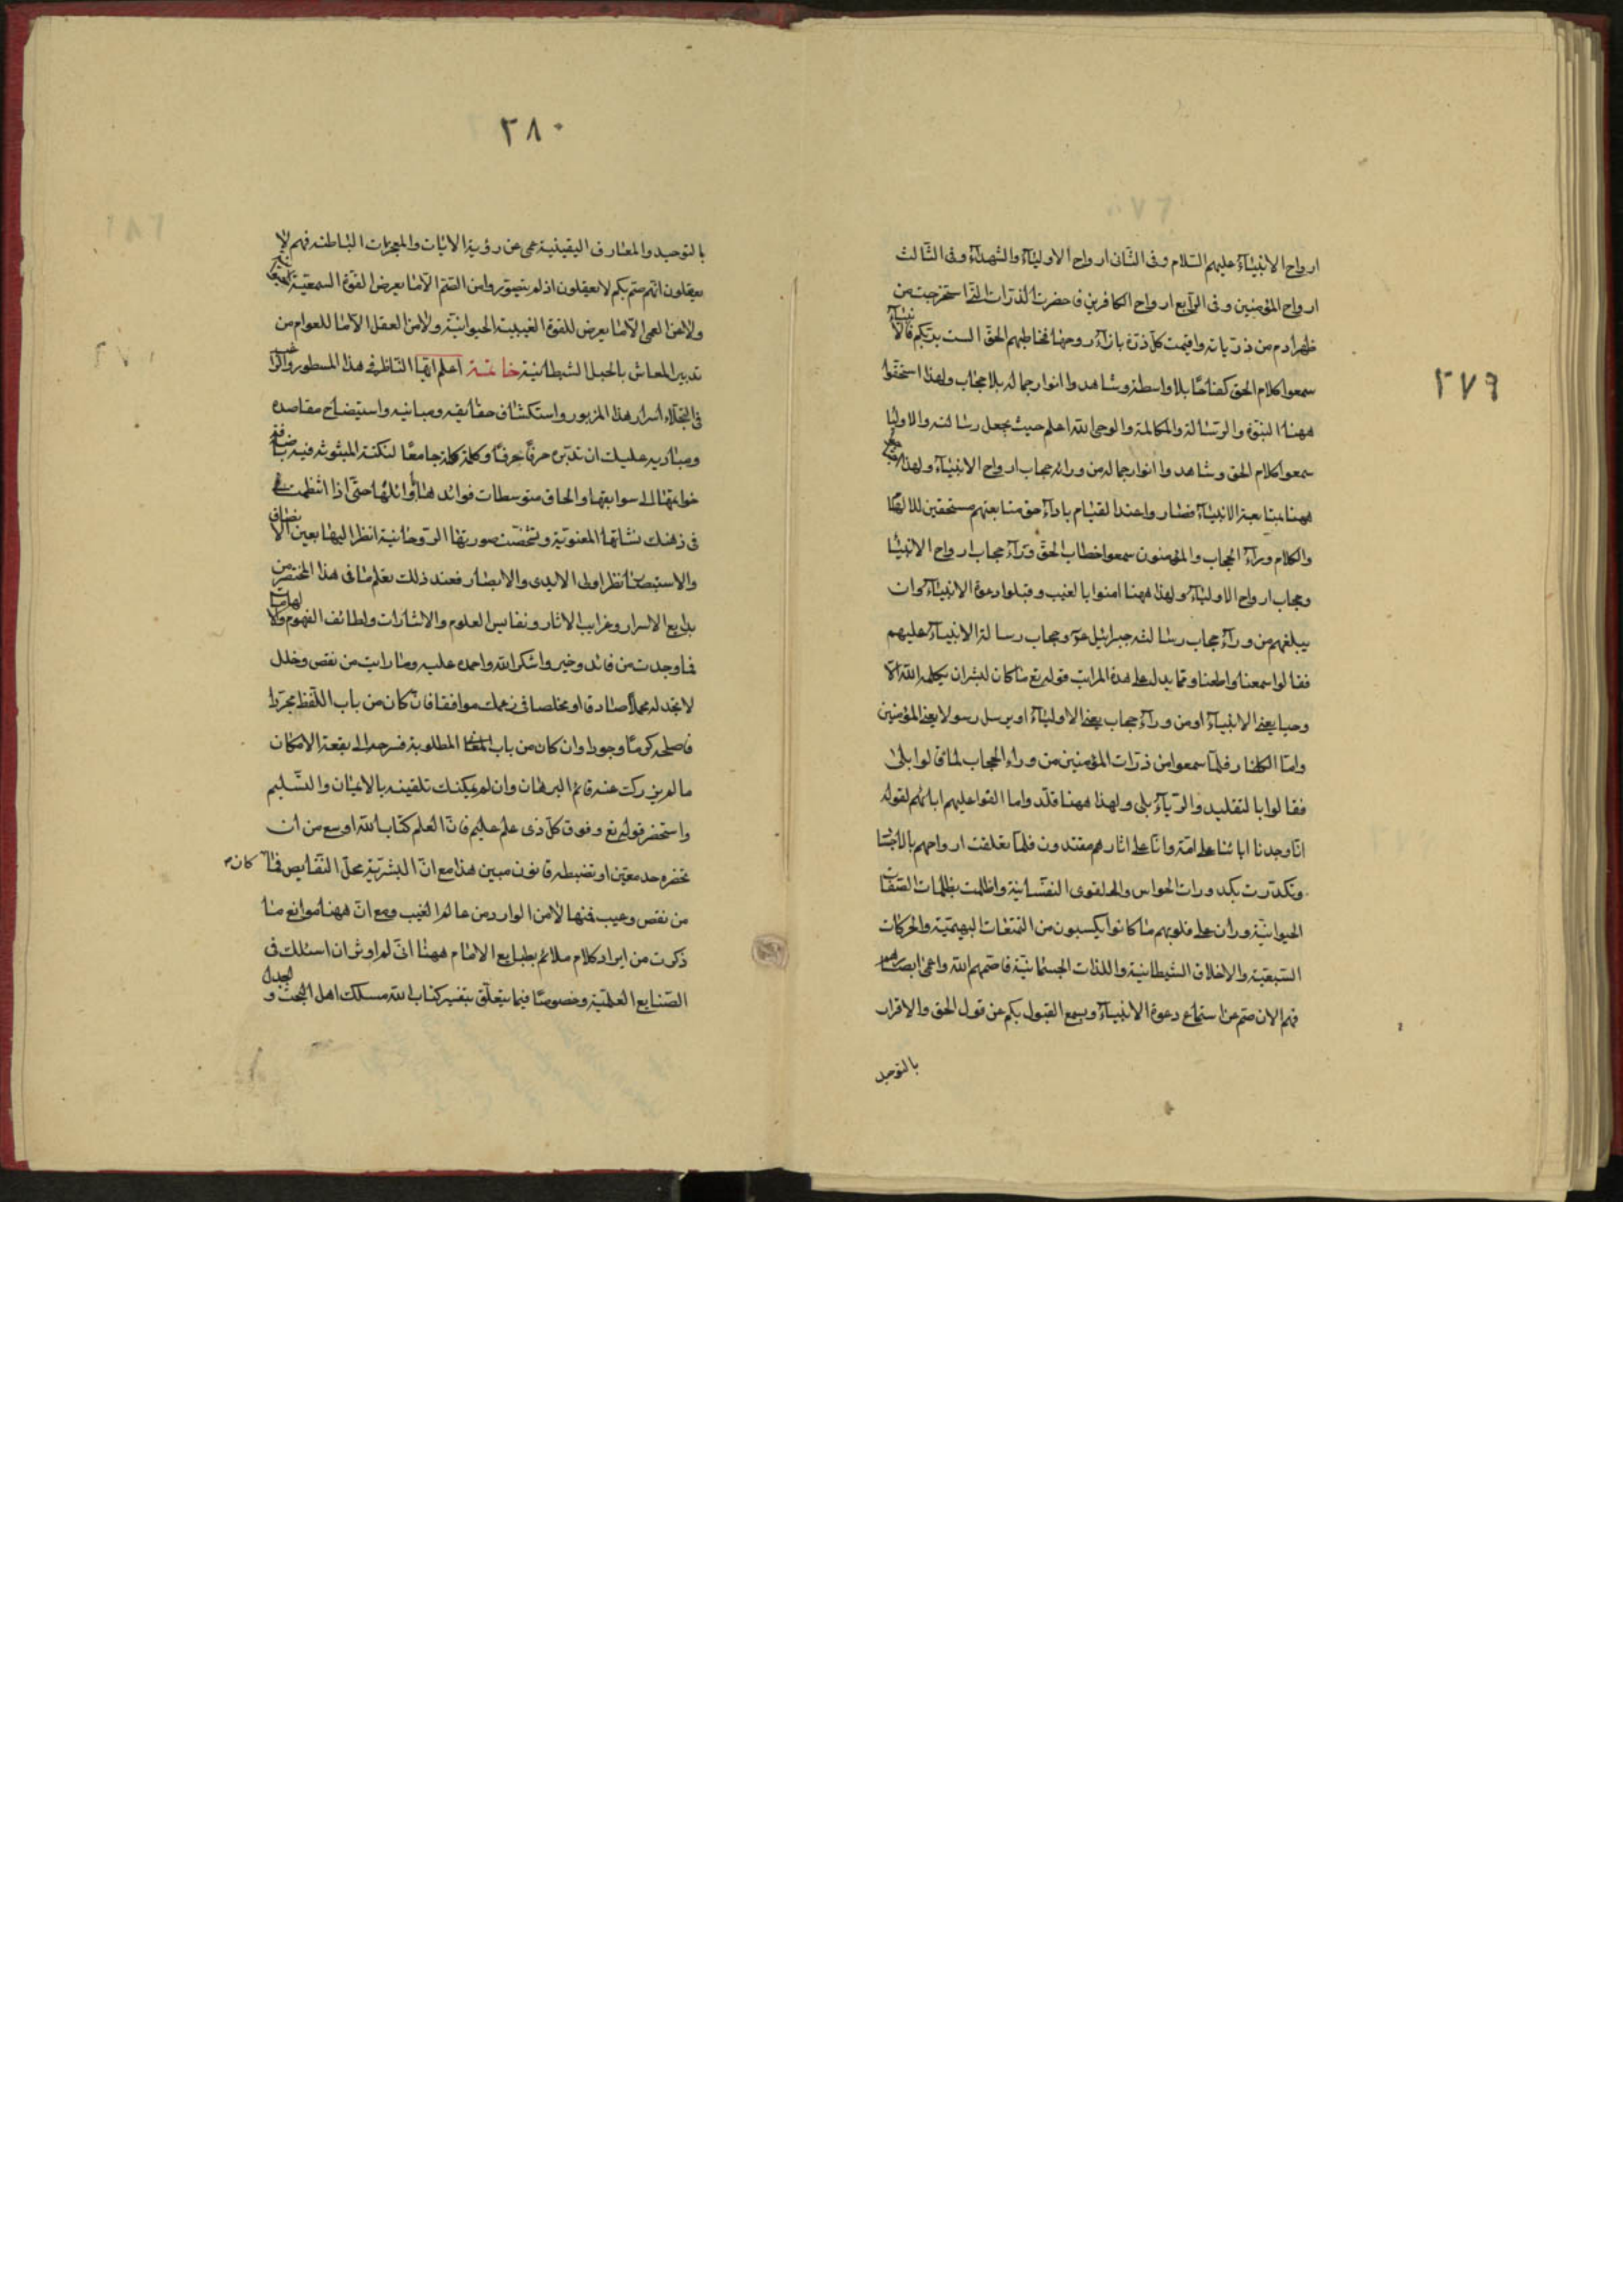 ٢٧٩
ارواح الانبیآء علیهم السّلام و فی الثّانی ارواح الاولیآء والشهدآء و فی الثّالث
ارواح المؤمنین و فی الرّابع ارواح الکافرین فاحضرت الذرّات الّتی استخرجت من
ظهر ادم من ذریاته واقیمت کلّ ذرّة بازآء روحها فخاطبهم الحقّ الست بربّکم فالانبیآء
سمعوا کلام الحق کفاحًا بلا واسطة وشاهدوا انوار جماله بلا حجاب ولهذا استحقّوا
ههنا النبوّة والرّسالة والمکالمة والوحی الله اعلم حیث یجعل رسالته والاولیا
سمعوا کلام الحق وشاهدوا انوار جماله من ورآء حجاب ارواح الانبیآء ولهذا
ههنا بمتابعة الانبیآء فصاروا عند القیام بادآء حق متابعتهم مستحقین للالهام
والکلام ورآء الحجاب والمؤمنون سمعوا خطاب الحقّ ورآء حجاب ارواح الانبیا
وحجاب ارواح الاولیآء ولهذا ههنا امنوا بالغیب وقبلوا دعوة الانبیآء وان
یبلغهم من ورآء حجاب رسالة جبرائیل وحجاب رسالة الانبیآء علیهم
فقالوا سمعنا واطعنا وممّا یدل علی هذه المراتب قوله تع ما کان لبشر ان یکلمه الله الّا
وحیا یعنی الانبیآء او من ورآء حجاب یعنی الاولیآء او یرسل رسولا یعنی المؤمنین
وامّا الکفار فلمّا سمعوا من ذرّات المؤمنین من وراء الحجاب لما قالوا بلی
فقالوا بالتقلید والرّیآء بلی ولهذا ههنا قلّدوا ما الفوا علیهم اباءهم لقوله
انّا وجدنا ابائنا علی امّة وانّا علی اثارهم مقتدون فلمّا تعلقت ارواحهم بالاجسا
وتکدّرت بکدورات الحواس والقوی النفسانیة واظلمت بظلمات الصفات
الحیوانیّة وران علی قلوبهم ما کانوا یکسبون من التمتعات البهیمیّة والحرکات
السّبعیّة والاخلاق الشیطانیة واللذات الجسمانیّة فاصمّهم الله واعمی ابصارهم
فهم الان صمّ عن استماع دعوة الانبیآء وبسمع القبول بکم عن قول الحق والاقرار
بالتوحید
٢٨٠
بالتوحید والمعارف الیقینیة عمی عن رؤیة الایات والمعجزات الباطنة فهم لا
یعقلون انّهم صمّ بکم لا یعقلون اذ لم یتصوّروا من الصّم الّا ما یعرض القوّة السمعیّة
ولا من العمی الّا ما یعرض للقوّة الحیوانیّة ولا من العقل الّا ما للعوام من
تدبیر المعاش بالحیل الشیطانیّة خاتمة اعلم ایّها النّاظر فی هذا المسطور والراغب
فی اجتلاء اسرار هذا المزبور واستکشاف حقایقه ومبانیه واستیضاح مقاصده
ومبادیه علیک ان تدبّره حرفًا حرفًا وکلمة کلمة جامعًا لنکته المبثوثة فیه باضافة
خواتمها الی سوابقها والحاق متوسطات فوائدها باوائلها حتّی اذا انتظمت
فی ذهنک نشأتها المعنویّة وتشخّصت صورتها الرّوحانیّة انظر الیها بعین الانصاف
والاستبصار نظر اولی الایدی والابصار فعند ذلک تعلم ما فی هذا المختصر من
بدایع الاسرار وغرایب الاثار ونفایس العلوم والاشارات ولطائف الفهوم والالهامات
فما وجدت من فائدة وخیر واشکر الله واحمده علیه وما رایت من نقص وخلل
لا تجد له محملًا صادقا او مخلصا فی زعمک موافقا فان کان من باب اللّفظ مجرّدا
فاصلحه کرمًا وجودا وان کان من باب المعنی المطلوبة فسرحه الی بقعة الامکان
ما لم یزدک عنه قائم البرهان وان لم یمکنک تلقینه بالایمان والتسلیم
واستحضر قوله تع وفوق کلّ ذی علم علیم فانّ العلم کتاب الله اوسع من ان
تحضره حد معیّن او تضبطه قانون مبین هذا مع انّ البشریّة محلّ النّقایص فما کان
من نقص وعیب فمنها لا من الوارد من عالم الغیب ومع انّ ههنا موانع ما
ذکرت من ایراد کلام ملائم بطبایع الانام ههنا انّی لم اوثر ان اسئلک فی
الصّنایع العلمیّة وخصوصًا فیما یتعلّق بتفسیر کتاب الله مسلک اهل البحث والجدل